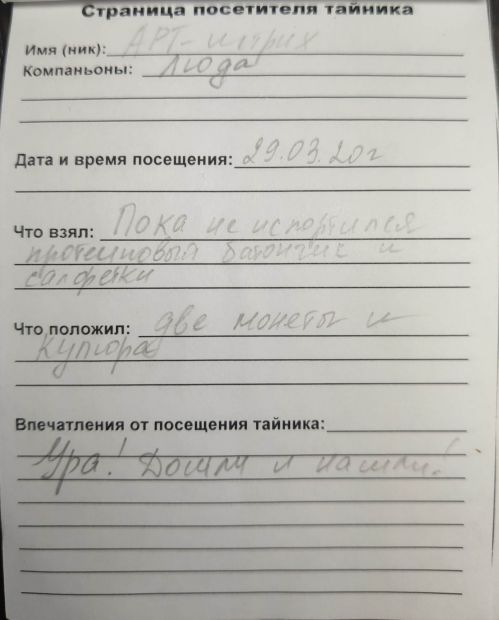 Страница посетителя тайника
Имя (ник): АРТ-штрих
Компаньоны: Люда
Дата и время посещения: 29.03.20г
Что взял: Пока не испортился
протеиновый батончик и
салфетки
Что положил: две монеты и
купюра
Впечатления от посещения тайника:
Ура! Дошли и нашли!